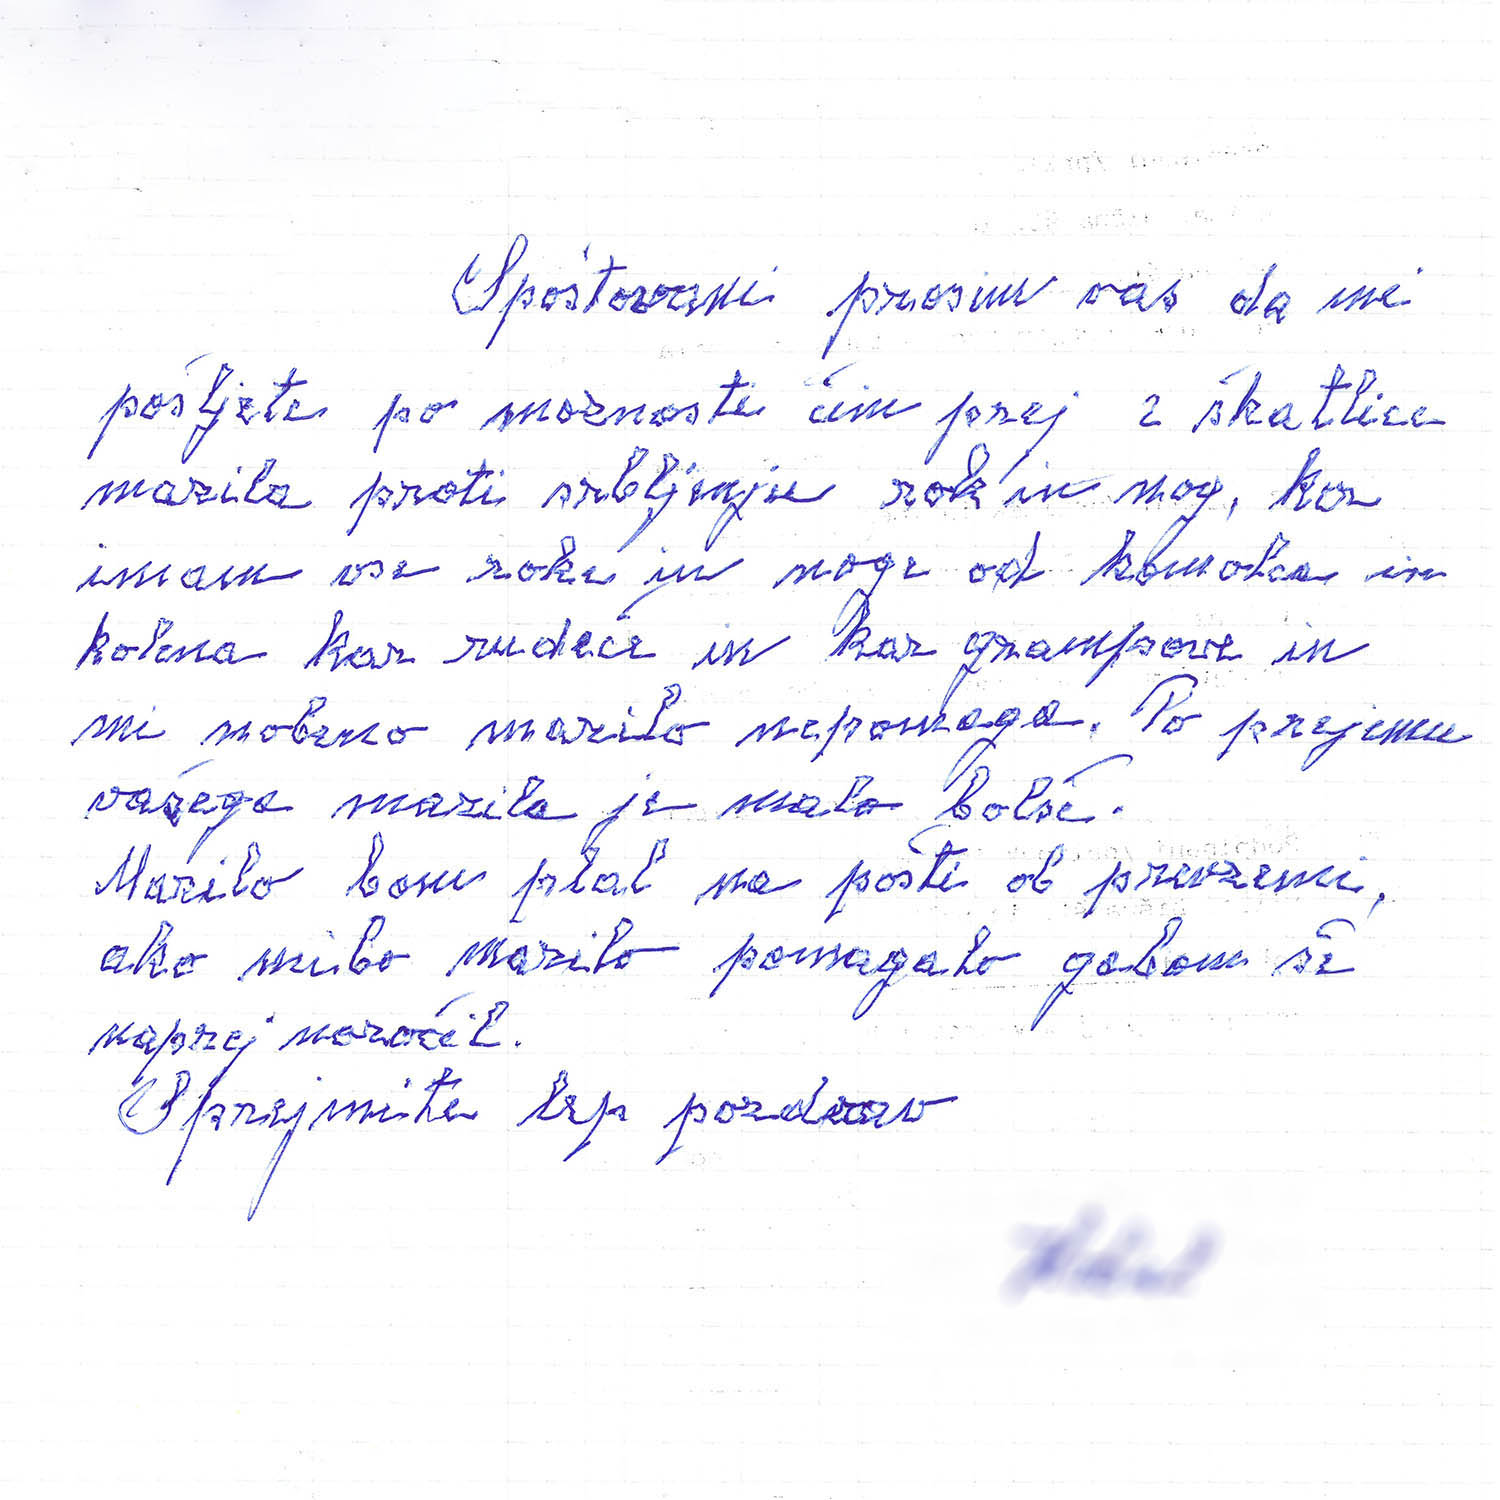 Spoštovani prosim vas da mi
pošljete po možnosti čim prej 2 škatlice
mazila proti srbljenju rok in nog, kar
imam vse roke in noge od komolca in
kolena kar rudeče in kar grampove in
mi nobeno mazilo nepomaga. Po prejemu
vašega mazila je malo bolše.
Mazilo bom plal na pošti ob prevzemi,
ako mibo mazilo pomagalo gabom še
naprej naročil.
Sprejmite lep pozdrav